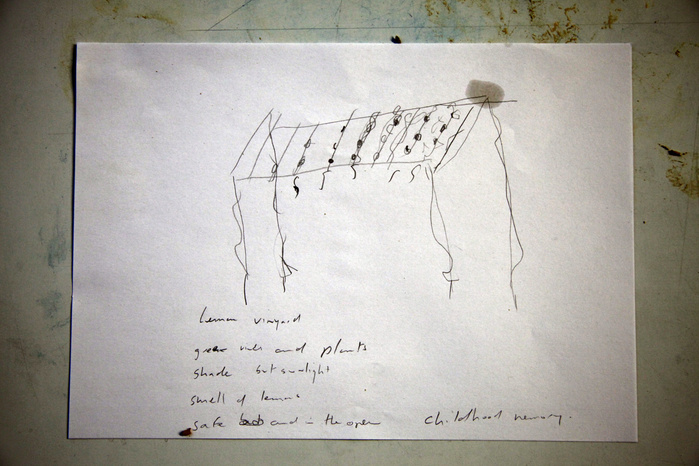 lemon vinyard
green and plants
shade but sunlight
smell of lemons
safe and in the open
childhood memory.